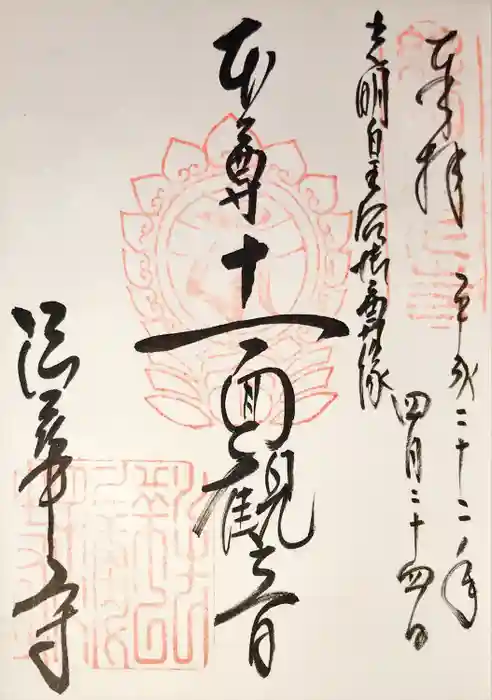 奉拝
平成二十二年
四月二十四日
光明皇后御尊像
本尊十一面観音
法華寺